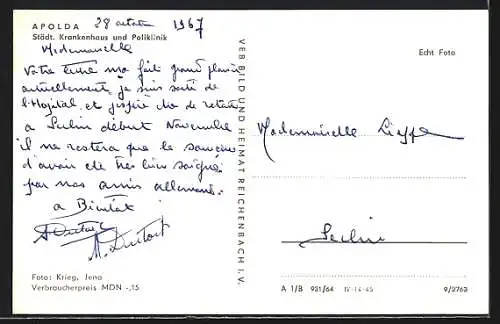 APOLDA
28 octobre 1967
Städt. Krankenhaus und Poliklinik
Mademoiselle
Votre lettre m'a fait grand plaisir
actuellement je suis sorti de
l'Hopital et j'espère être de retour
a Seclin début Novembre
il ne restera que le souvenir
d'avoir été très bien soigné
par nos amis allemands.
a Bientôt
Foto: Krieg, Jena
Verbraucherpreis MDN -,15
VEB BILD UND HEIMAT REICHENBACH I. V.
Echt Foto
Mademoiselle
Seclin
A 1/B 931/64 IV-14-45 9/2763